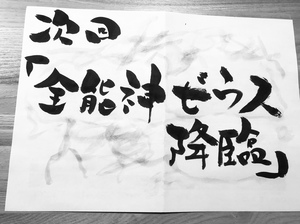 次回
「全能神ゼウス
降臨」